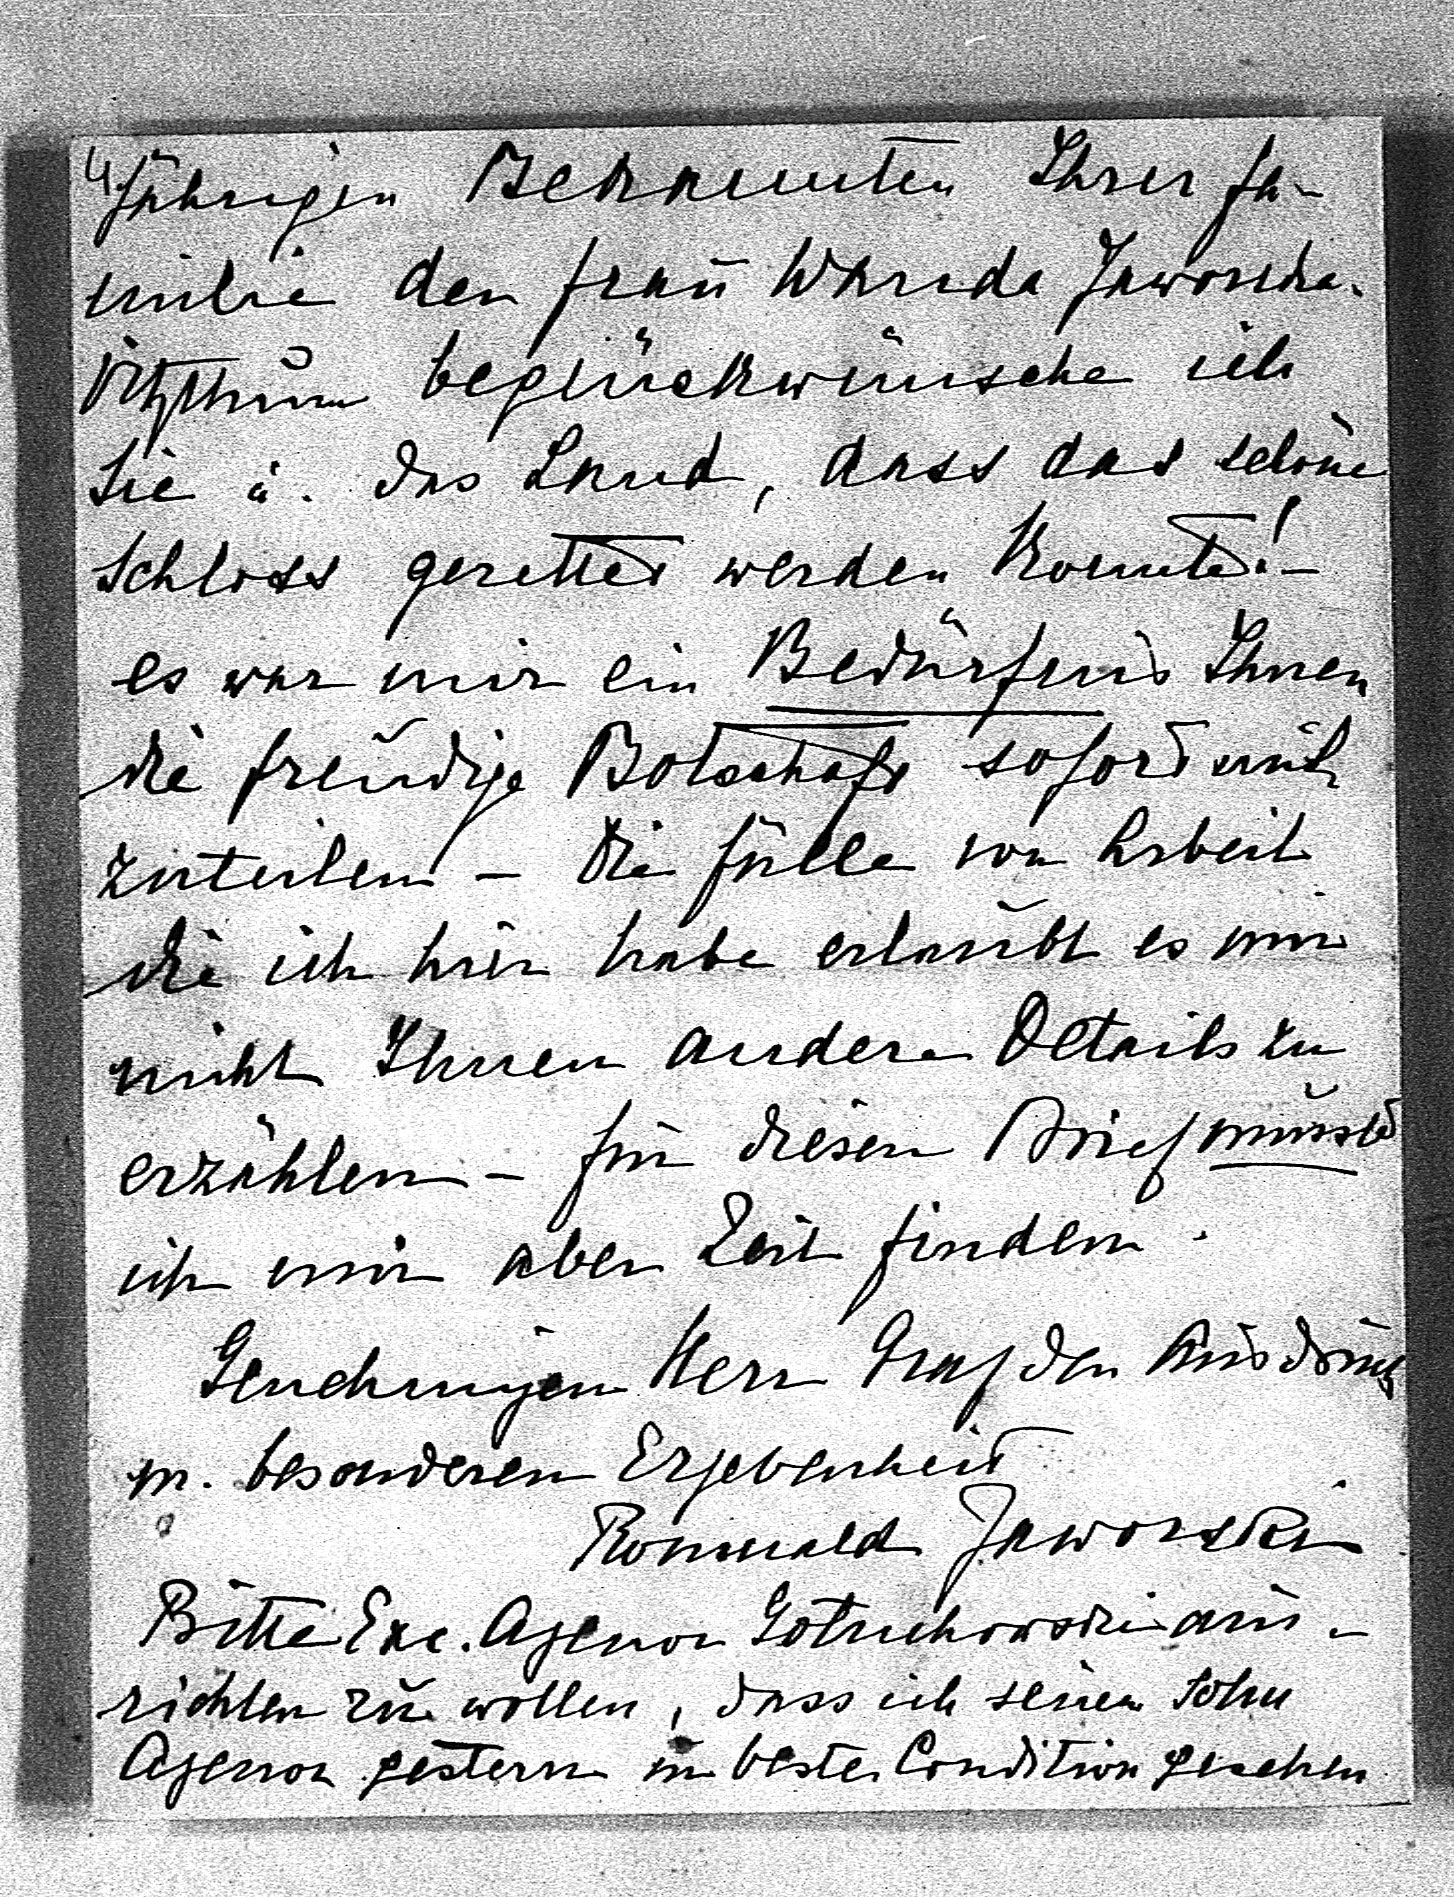 4.
jährigen Bekannten Ihrer Fa-
milie der Frau Wanda Jaworska-
Vitzthum beglückwünsche ich
Sie u. das Land, dass das schöne
Schloss gerettet werden konnte! -
es war mir ein Bedürfnis Ihnen
die freudige Botschaft sofort mit
zuteilen - die Fülle von Arbeit
die ich hier habe erlaubt es mir
nicht Ihnen andere Details zu
erzählen - für diesen Brief musste
ich mir aber Zeit finden.
Genehmigen Herr Graf den Ausdruck
m. besonderen Ergebenheit
Romuald Jaworski
Bitte Exc. Agenor Gołuchowski aus-
richten zu wollen, dass ich seinen Sohn
Agenor gestern in bester Condition gesehen